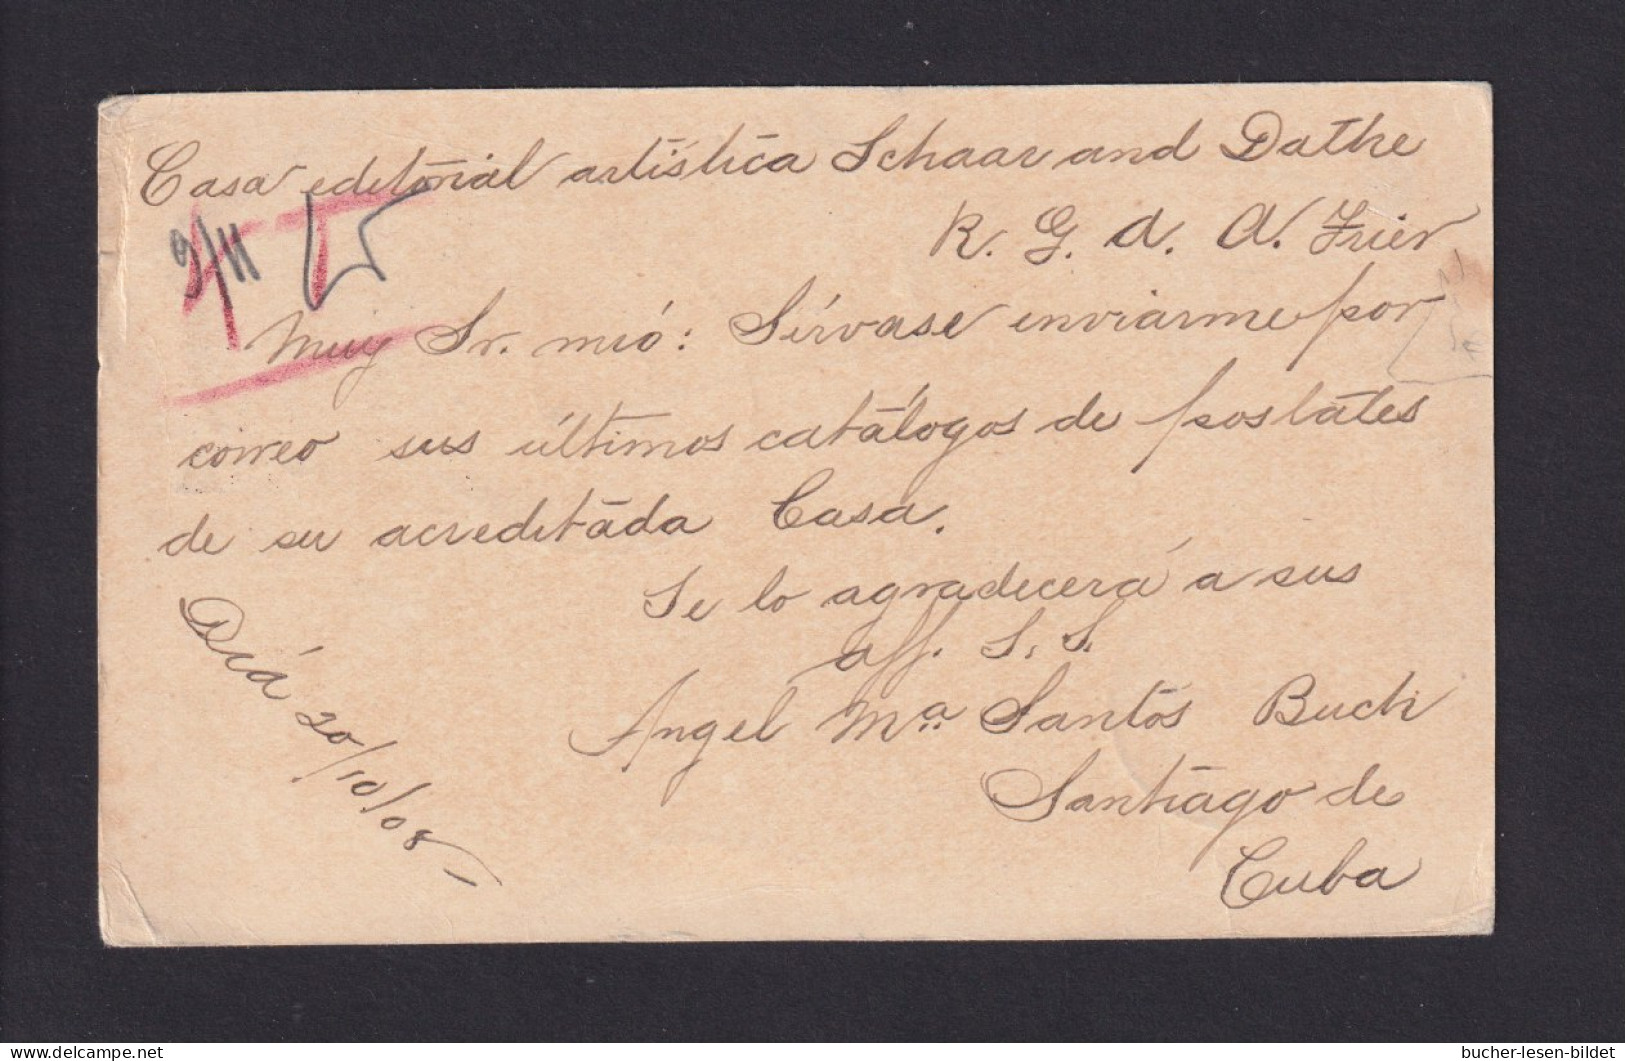 Casa editorial artística Schaar and Dathe
K. G. A. A. Trier
9/11
Muy Sr. mió: Sírvase enviarme por
correo sus últimos catálogos de postales
de su acreditada Casa.
Se lo agradecerá a sus
aff. S. S.
Angel Mª Santos Buch
Santiago de
Cuba
20/10/08
bucher-lesen-bildet
delcampe.net